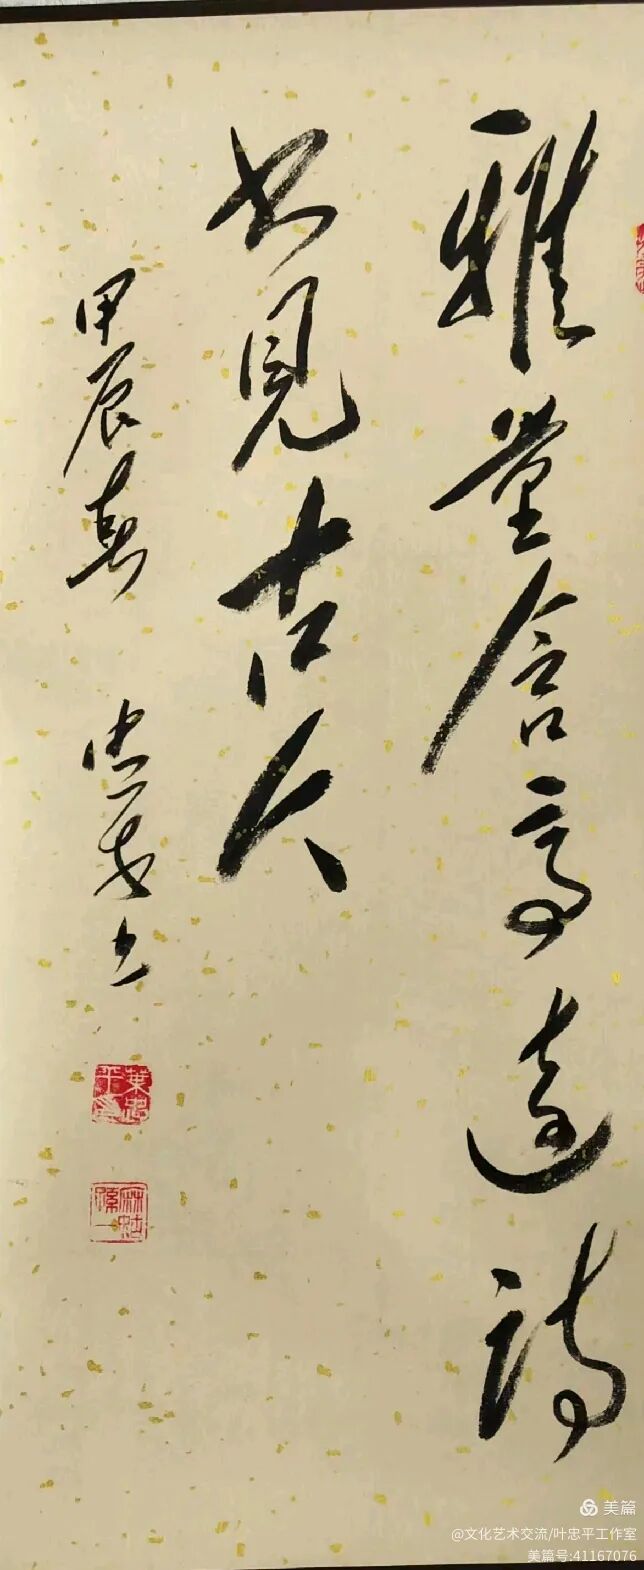 雅量含高遠詩
书見古今
甲辰春 忠平书
葉忠平印
美篇
@文化艺术交流/叶忠平工作室
美篇号:41167076